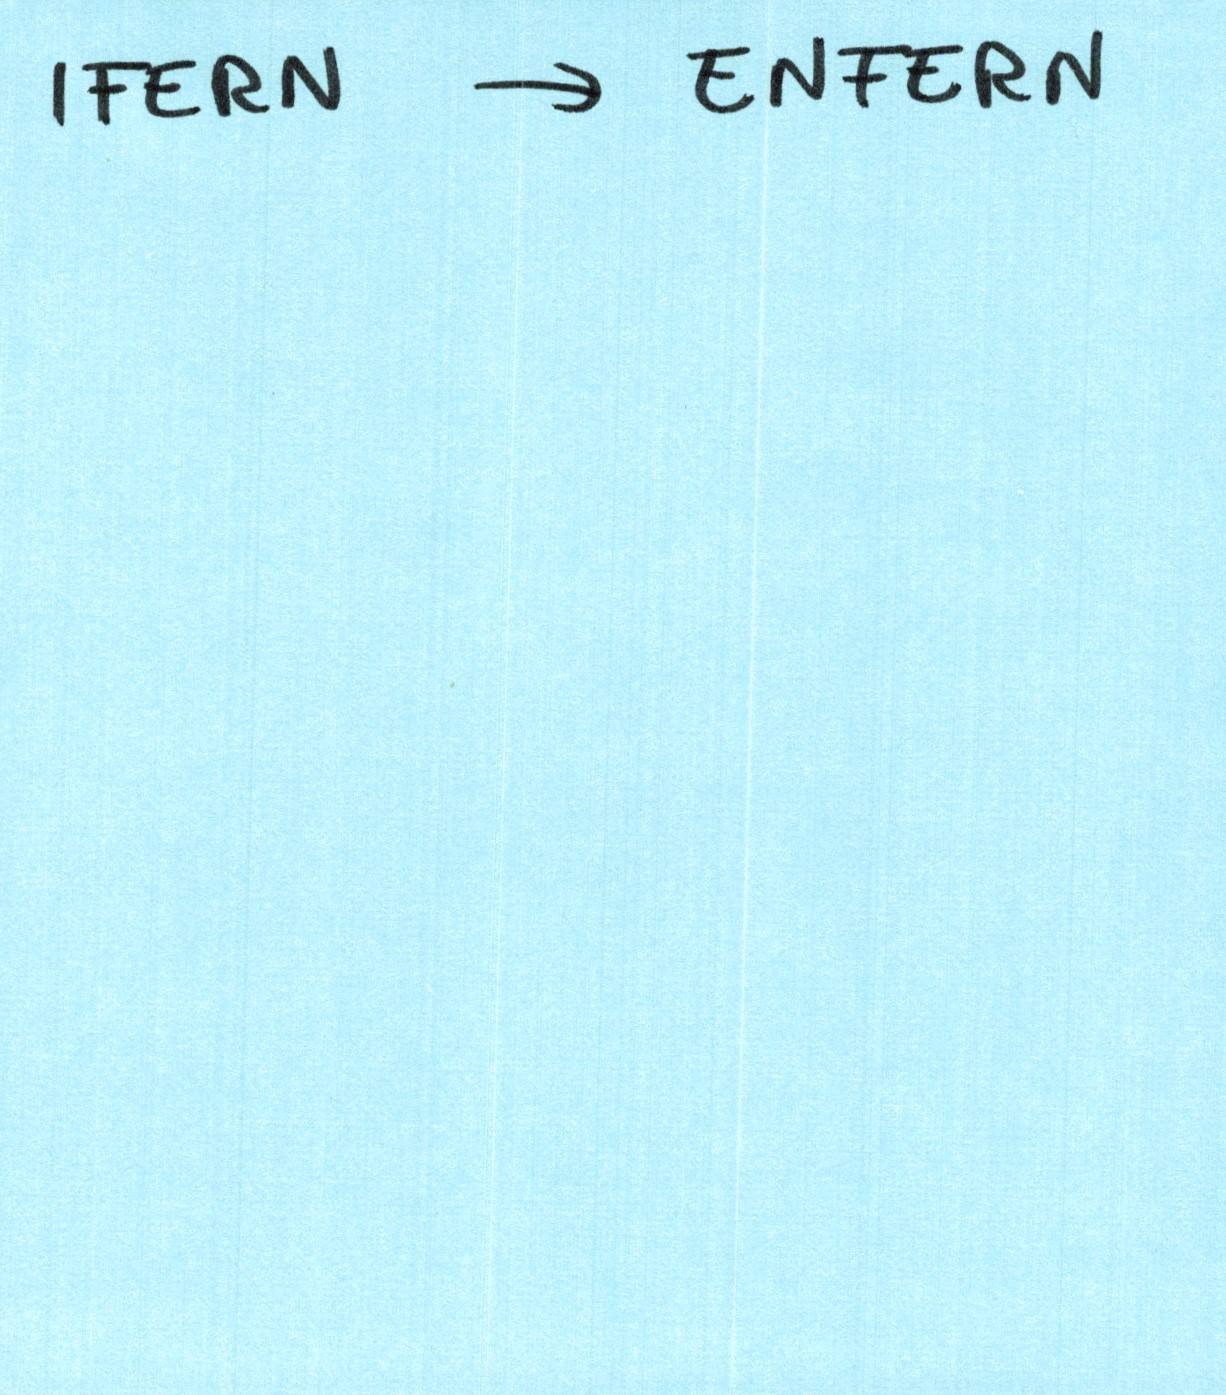 IFERN → ENFERN